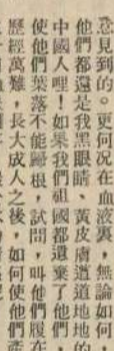 見到的。更何况在血液裏，無論如何，
他們都還是我黑眼睛、黃皮膚道道地地的
中國人哩！如果我們祖國都遺棄了他們，
使他們葉落不能歸根，試問，叫他們腹在
歷經萬難，長大成人之後，如何使他們產